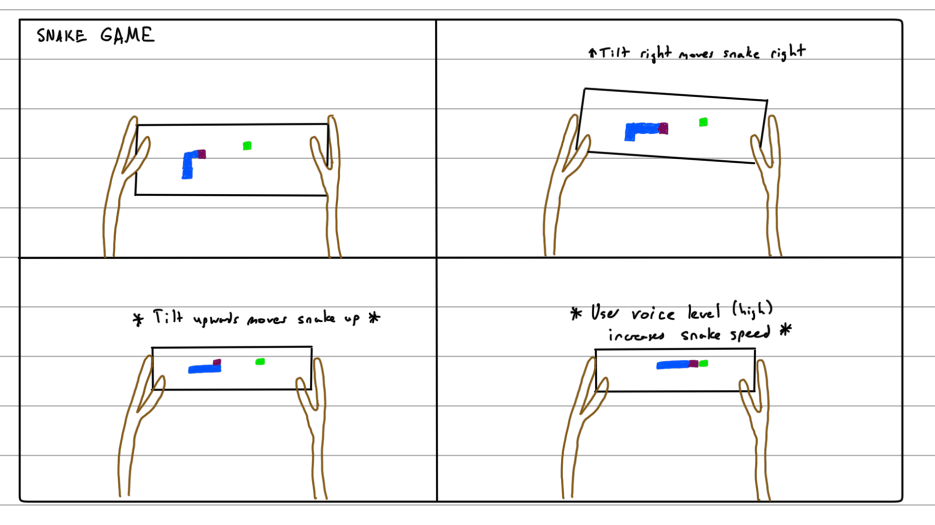 SNAKE GAME
*Tilt right moves snake right
* Tilt upwards moves snake up *
* User voice level (high)
increases snake speed *